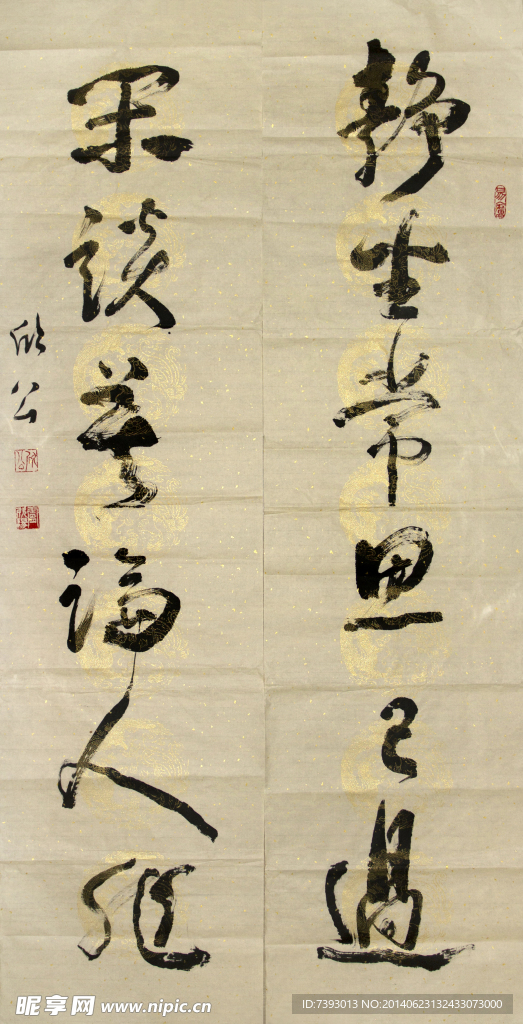 靜坐常思己過
閑談莫論人非
欣公
昵享网 www.nipic.cn
ID:7393013 NO:20140623132433073000